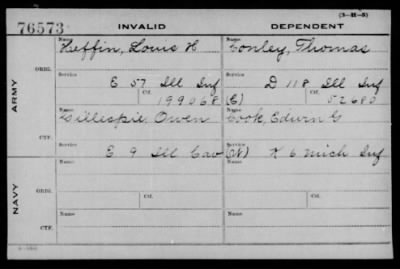 (3-21-5)
76573 INVALID DEPENDENT
Name Name
Heffin, Louis H Conley, Thomas
ORIG. Service Service
E 57 Ill Inf D 118 Ill Inf
Ctf. Ctf.
199068 (C) 52680
ARMY
Name Name
Gillespie, Owen Cook, Edwin G
CTF. Service Service
E 9 Ill Cav K 6 Mich Inf
Name Name
ORIG. Service Ctf. Service Ctf.
NAVY
Name Name
CTF. Service Service